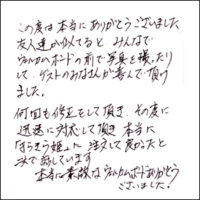 この度は本当にありがとうございました
友人達が似てると みんなで
ウェルカムボードの前で写真を撮ったり
して ゲストのみなさんが喜んで頂け
ました。
何回も修正をして頂き、その度に
迅速に対応して頂き 本当に
に注文して良かったと
で話しています
本当に素敵なウェルカムボードありがとう
ございました!